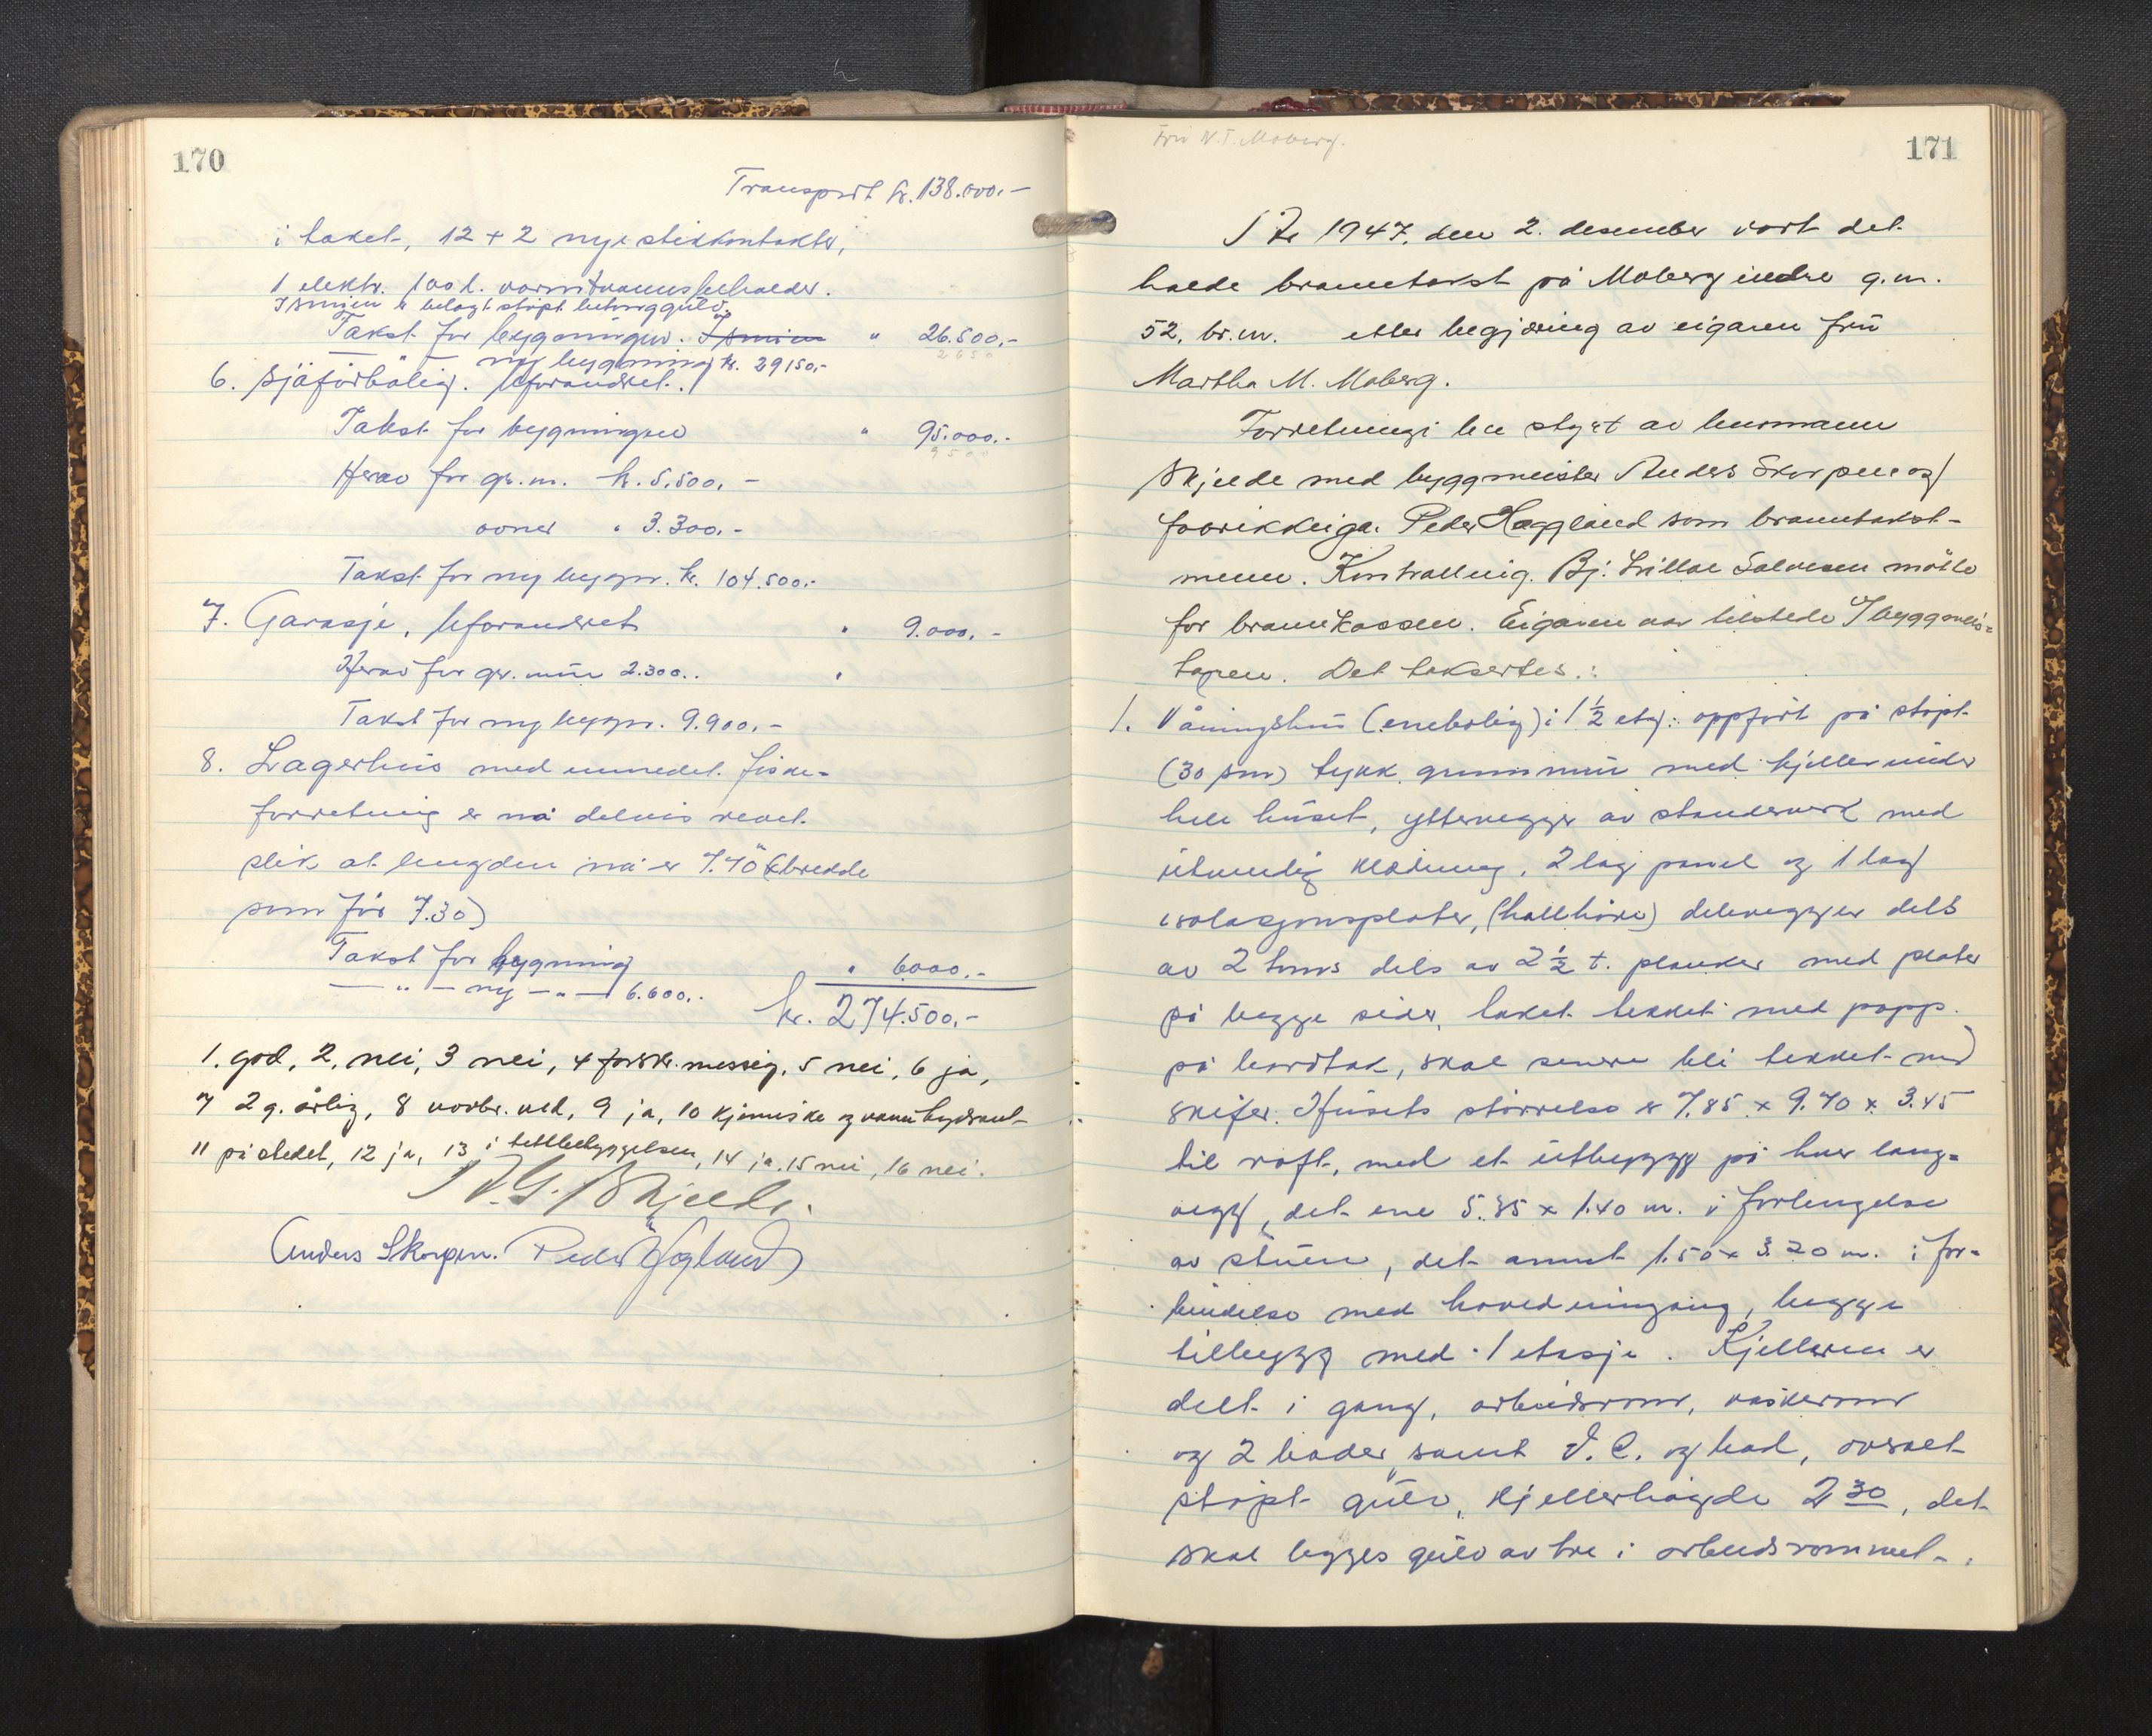 170
Transport kr. 138.000.-
i taket, 12 + 2 nye stikkontakter,
1 elektr. 100 l. varmtvannsbeholder.
er belagt støpt betonggulv.
Takst for bygningen. " 26.500.-
2650
ny bygning kr. 29150.-
6. Sjøførbolig. Uforandret.
Takst for bygningen " 95.000.-
9500
Herav for gr.m. kr. 5.500.-
ovner " 3.300.-
Takst for ny bygn. kr. 104.500.-
7. Garasje, Uforandret " 9.000.-
Herav for gr. mur 2.300.. "
Takst for ny bygn. 9.900.-
8. Lagerhus med innredet fiske-
forretning er nå delvis revet
slik at lengden nå er 7.70 (bredde
som før 7.30)
Takst for bygning " 6000.-
— " — ny — " — 6.600..
kr. 274.500.-
1. god, 2. nei, 3 nei, 4 forskr. messig, 5 nei, 6 ja,
7 2 g. årlig, 8 ved, 9 ja, 10 kjemiske og vannhydrant
11 på stedet, 12 ja, 13 i tettbebyggelsen, 14 ja. 15 nei, 16 nei.
Skjelde.
Anders Skorpen. Peder Høgland
Fru N.T. Moberg.
171
År 1947, den 2. desember vart det
halde branntakst på Moberg indre g.m.
52, br.m. etter begjæring av eigaren frú
Martha M. Moberg.
Forretningi ble styrt av lensmann
Skjelde med byggmeister Anders Skorpen og
fabrikkeigar Peder Haggland som branntakst-
menn. Kontrolling. Bj. Lillae Salvesen møtte
for brannkassen. Eigaren var tilstede
Det taksertes.:
1. Våningshus (enebolig) i 1 ½ etg. oppført på støpt
(30 sm) tykk grunnmur med kjeller under
hele huset, yttervegger av standerverk med
utvendig kledning, 2 lag panel og 1 lag
isolasjonsplater, delevegger dels
av 2 toms dels av 2 ½ t. planker med plater
på begge sider, taket tekket med papp
på bordtak, skal senere bli tekket med
skifer. Husets størrelse er 7.85 x 9.70 x 3.45
til røft, med et utbygg på hver lang-
vegg, det ene 5.85 x 1.40 m. i forlengelse
av stuen, det annet 1.50 x 3.20 m. i for-
bindelse med hovedinngang, begge
tilbygg med 1 etasje. Kjelleren er
delt i gang, arbeidsrom, vaskerom
og 2 boder samt V.C. og bad, overalt
støpt gulv, kjellerhøyde 2 30, det
skal legges gulv av tre i arbeidsrommet.